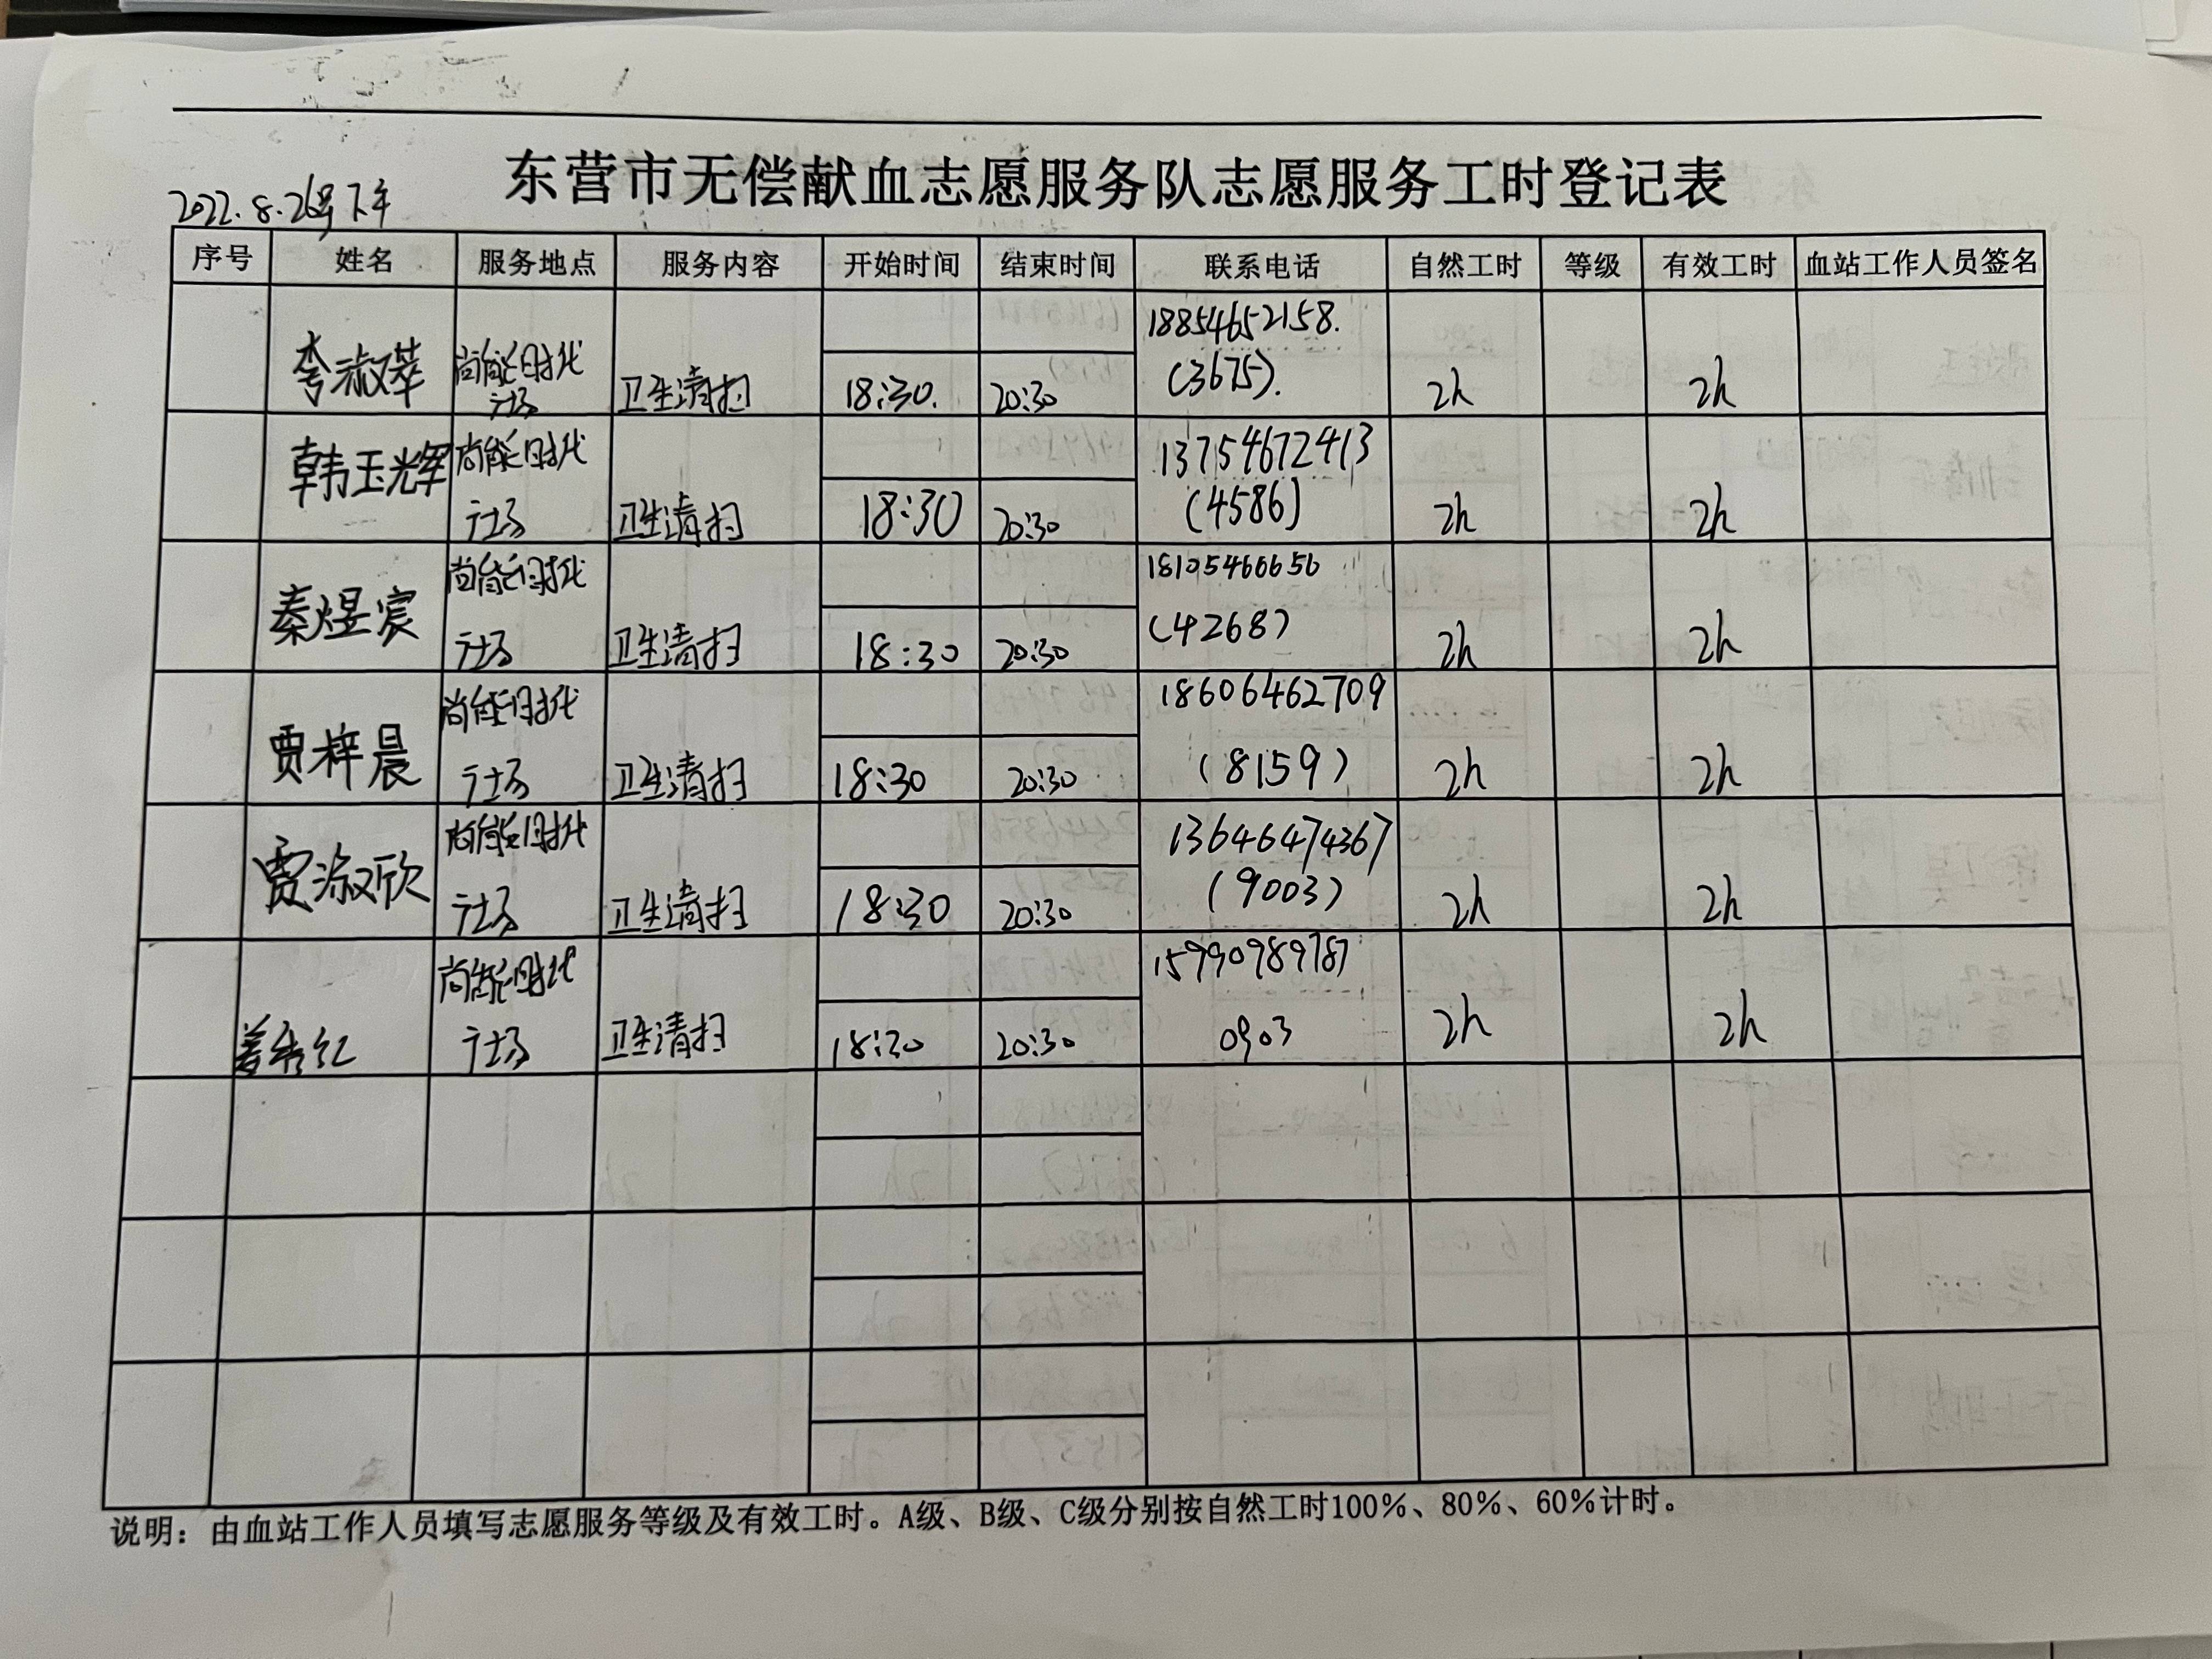 东营市无偿献血志愿服务队志愿服务工时登记表
2022.8.26号下午
序号 姓名 服务地点 服务内容 开始时间 结束时间 联系电话 自然工时 等级 有效工时 血站工作人员签名
李淑萃 尚能时代广场 卫生清扫 18:30. 20:30 18854652158. (3675). 2h 2h
韩玉辉 尚能时代广场 卫生清扫 18:30 20:30 13754672413 (4586) 2h 2h
秦煜宸 尚能时代广场 卫生清扫 18:30 20:30 18105466656 (4268) 2h 2h
贾梓晨 尚能时代广场 卫生清扫 18:30 20:30 18606462709 (8159) 2h 2h
贾淑欣 尚能时代广场 卫生清扫 18:30 20:30 13646474367 (9003) 2h 2h
尚能时代广场 卫生清扫 18:30 20:30 15990989787 0903 2h 2h
说明：由血站工作人员填写志愿服务等级及有效工时。A级、B级、C级分别按自然工时100%、80%、60%计时。